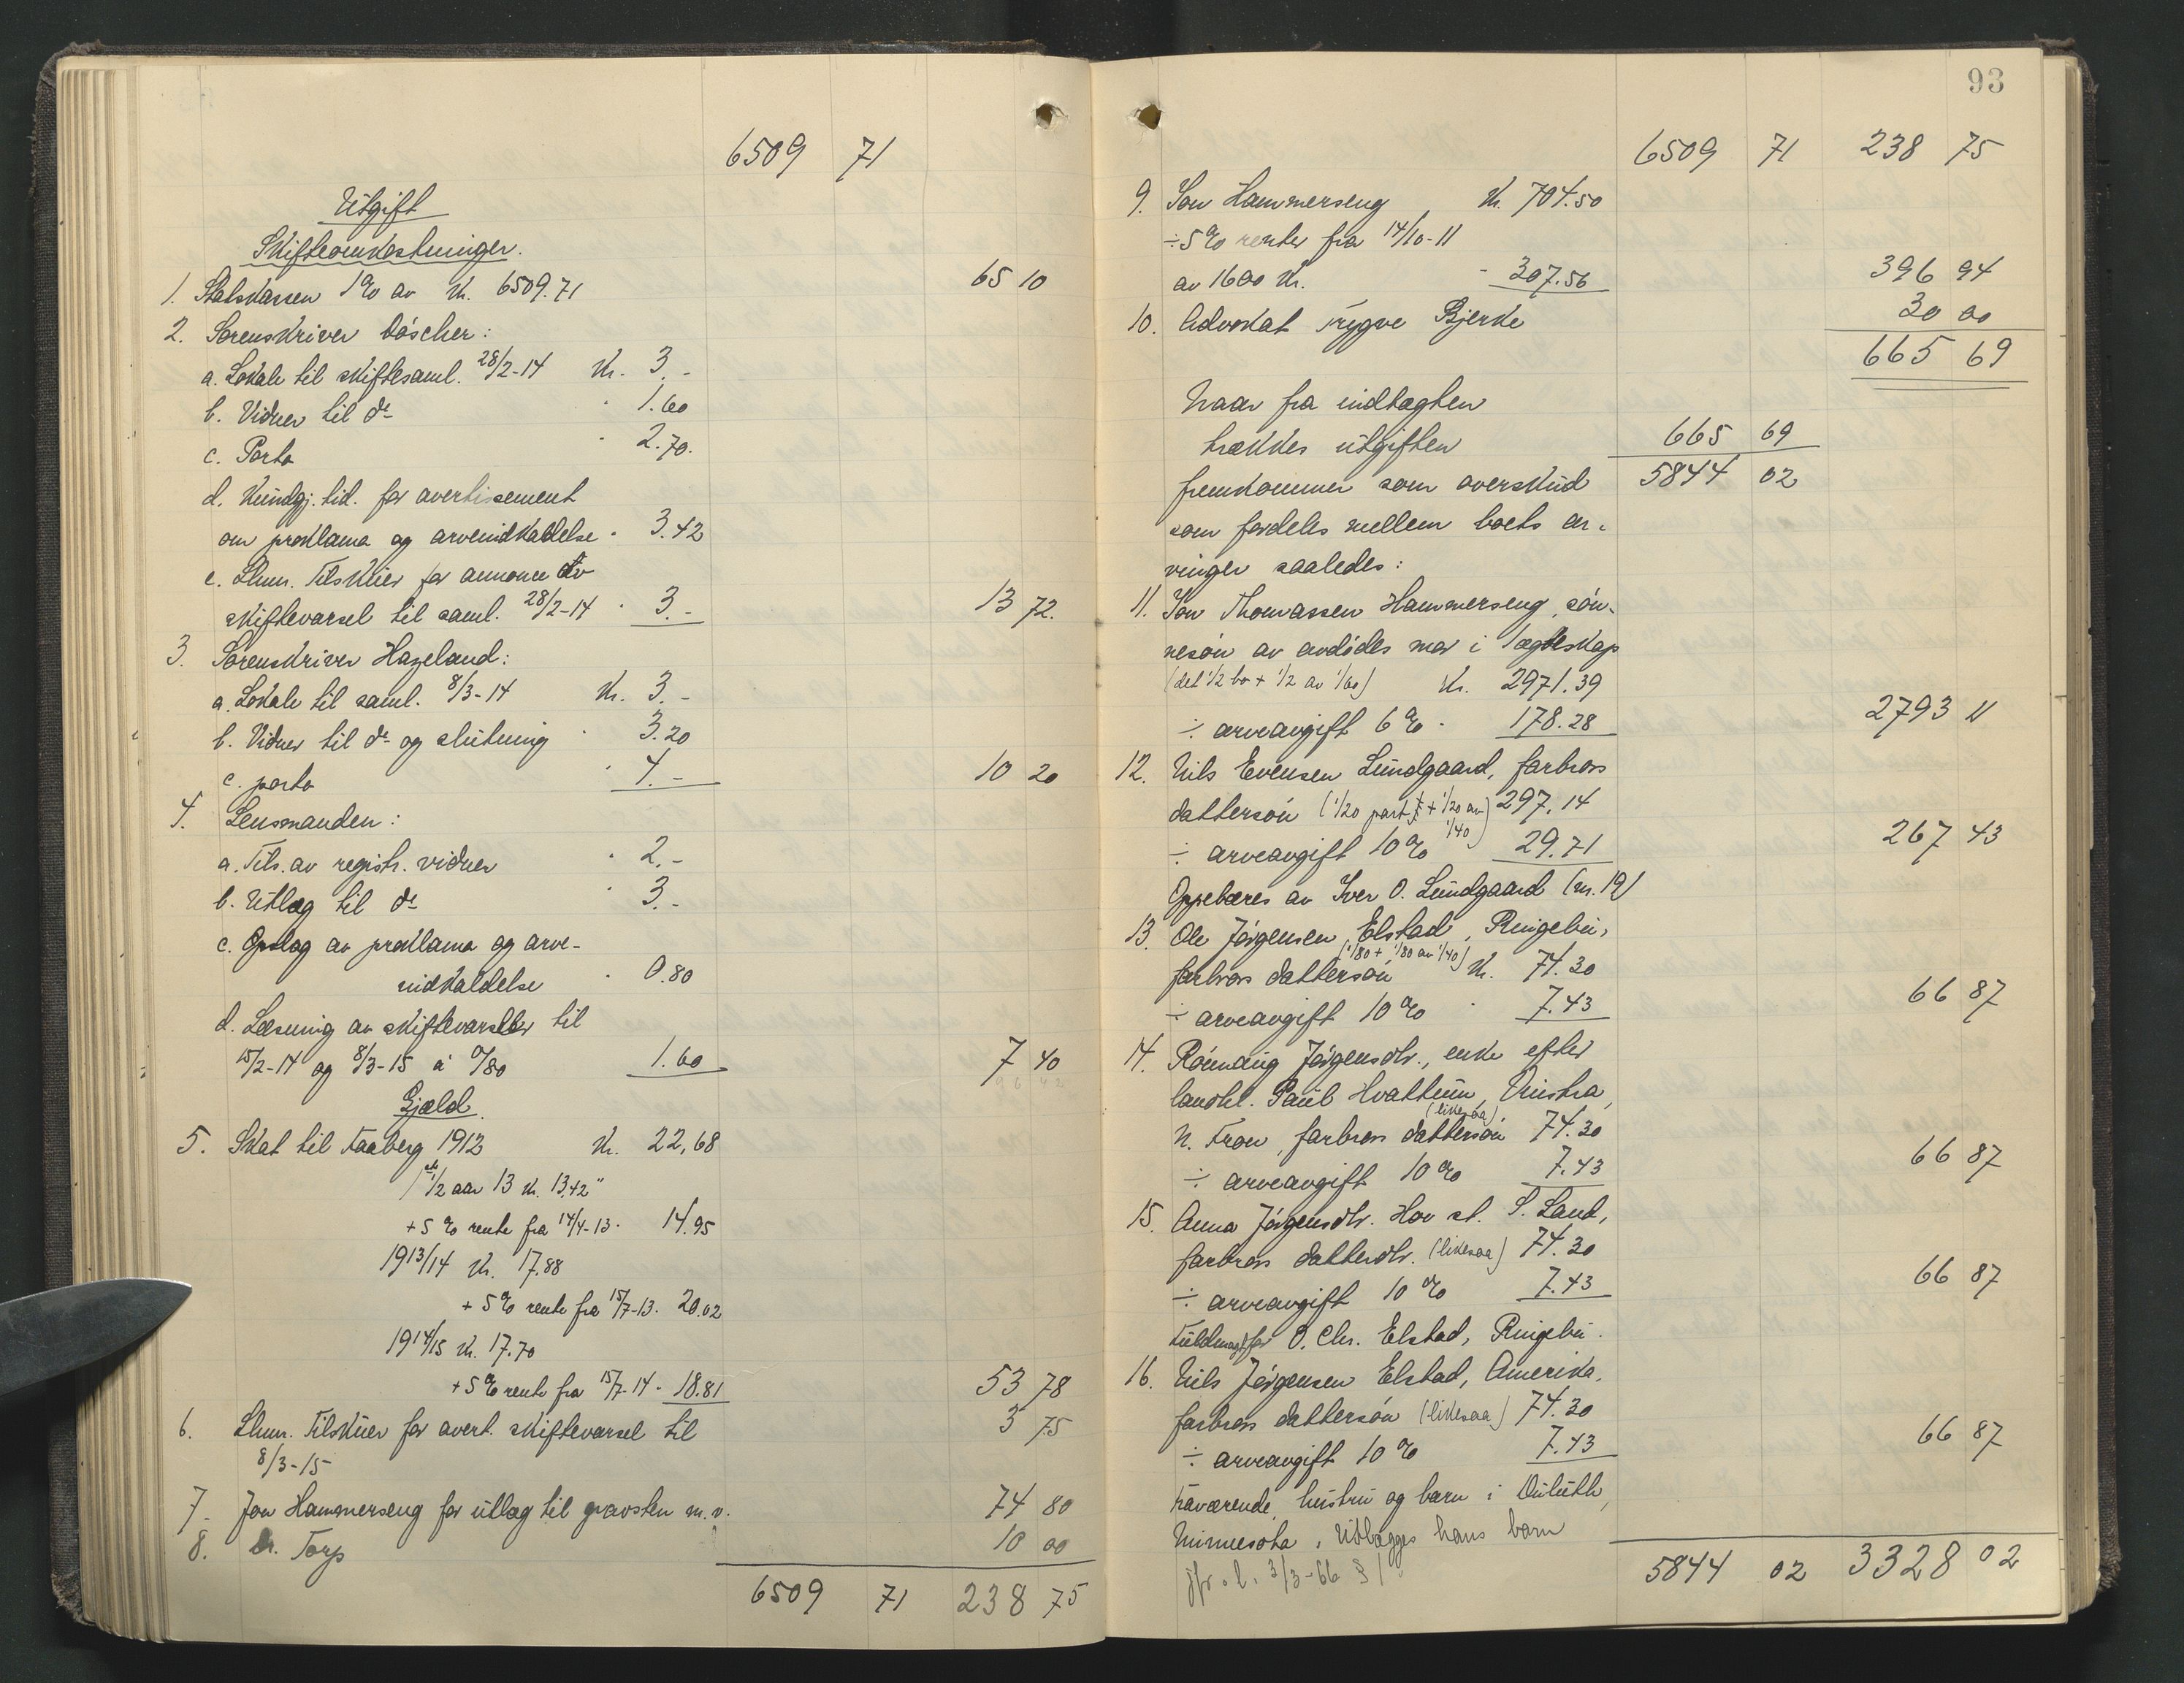 6509 71
Utgift
Skifteomkostninger.
1. Statskassen 1% av Kr. 6509.71 65 10
2. Sorenskriver Löscher:
a. Lokale til skiftesaml. 28/2-14 Kr. 3.-
b. Vidner til do " 1.60
c. Porto " 2.70.
d. Kundgj. tid. for avertissement
om proklama og arveindkaldelse " 3.42
e. Lhmr. Tilskuer for annonce av
skiftevarsel til saml. 28/2-14 " 3.- 13 72.
3. Sorenskriver Hazeland:
a. Lokale til saml. 8/3-14 Kr. 3.-
b. Vidner til do og slutning " 3.20
c. porto " 4.- 10 20
4. Lensmanden:
a. Tils. av registr. vidner " 2.-
b. Utlæg til do " 3.-
c. Opslag av proklama og arve-
indkaldelse " 0.80
d. Læsning av skiftevarsler til
15/2-14 og 8/3-15 à 0/80 1.60 7 40
Gjæld
5. Skat til Faaberg 1912 Kr. 22,68
1ste 1/2 aar 13 Kr. 13,42"
+ 5% rente fra 14/4-13 · 14.95
1913/14 Kr. 17.88
+ 5% rente fra 15/7-13 · 20.02
1914/15 Kr. 17.70
+ 5% rente fra 15/7-14 - 18.81 53 78
6. Lhmr. Tilskuer for avert. skiftevarsel til 3 75
8/3-15
7. Jon Hammerseng for utlæg til gravsten m.v. 74 80
8. Dr. Torp 10 00
6509 71 238 75
93
6509 71 238 75
9. Jon Hammerseng Kr. 704.50
÷ 5% renter fra 14/10-11
av 1600 Kr. - 307.56 396 94
10. Advokat Trygve Bjerke 30 00
665 69
Naar fra indtægten
trækkes utgiften 665 69
fremkommer som overskud 5844 02
som fordeles mellem boets ar-
vinger saaledes:
11. Jon Thomassen Hammerseng, sön-
nesön av avdödes mor i lægteskap
(det 1/2 bo + 1/2 av 1/60) Kr. 2971.39
÷ arveavgift 6% - 178.28 2793 11
12. Nils Evensen Lundgaard, farbrors
dattersön (1/20 part + 1/20 av 1/40) 297.14
÷ arveavgift 10% 29.71 267 43
Oppebæres av Iver O. Lundgaard (nr. 19)
13. Ole Jörgensen Elstad, Ringebu,
(1/80 + 1/80 av 1/40)
farbrors dattersön Kr. 74.30
÷ arveavgift 10% " 7.43 66 87
14. Rönnaug Jörgensdtr., enke efter
landhl. Paul Hvattum, Vinstra,
(likesaa)
N. Fron, farbrors dattersön 74.30
÷ arveavgift 10% 7.43 66 87
15. Anna Jörgensdtr. Hov st. S. Land,
farbrors datterdtr. (likesaa) 74.30
÷ arveavgift 10% 7.43 66 87
Fuldmagt for O. Chr. Elstad, Ringebu.
16. Nils Jörgensen Elstad, Amerika,
farbrors dattersön (likesaa) 74.30
÷ arveavgift 10% 7.43 66 87
Fraværende, hustru og barn i Duluth,
Minnesota. Utlægges hans barn
jfr. l. 3/3-66 § 1
5844 02 3328 02